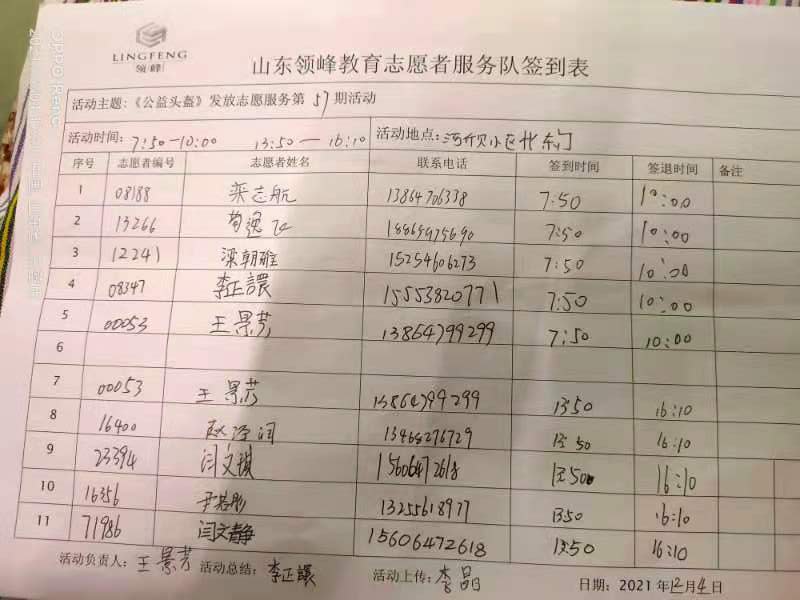 LINGFENG
领峰
山东领峰教育志愿者服务队签到表
活动主题:《公益头盔》发放志愿服务第 57 期活动
活动时间: 7:50—10:00 13:50 — 16:10 活动地点:
序号 志愿者编号 志愿者姓名 联系电话 签到时间 签退时间 备注
1 08188 栾志航 13864706338 7:50 10:00
2 13266 7:50 10:00
3 12241 梁朝 15254606273 7:50 10:00
4 08347 李正譞 15553820771 7:50 10:00
5 00053 王景芳 13864799299 7:50 10:00
6
7 00053 王景芳 13864799299 13:50 16:10
8 16400 赵泾润 13468276729 13:50 16:10
9 23394 闫文 15606472618 13:50 16:10
10 16356 尹若彤 13255618977 13:50 16:10
11 71986 闫文静 15606472618 13:50 16:10
活动负责人: 王景芳 活动总结: 李正譞 活动上传: 李晶 日期: 2021 年 12 月 4 日